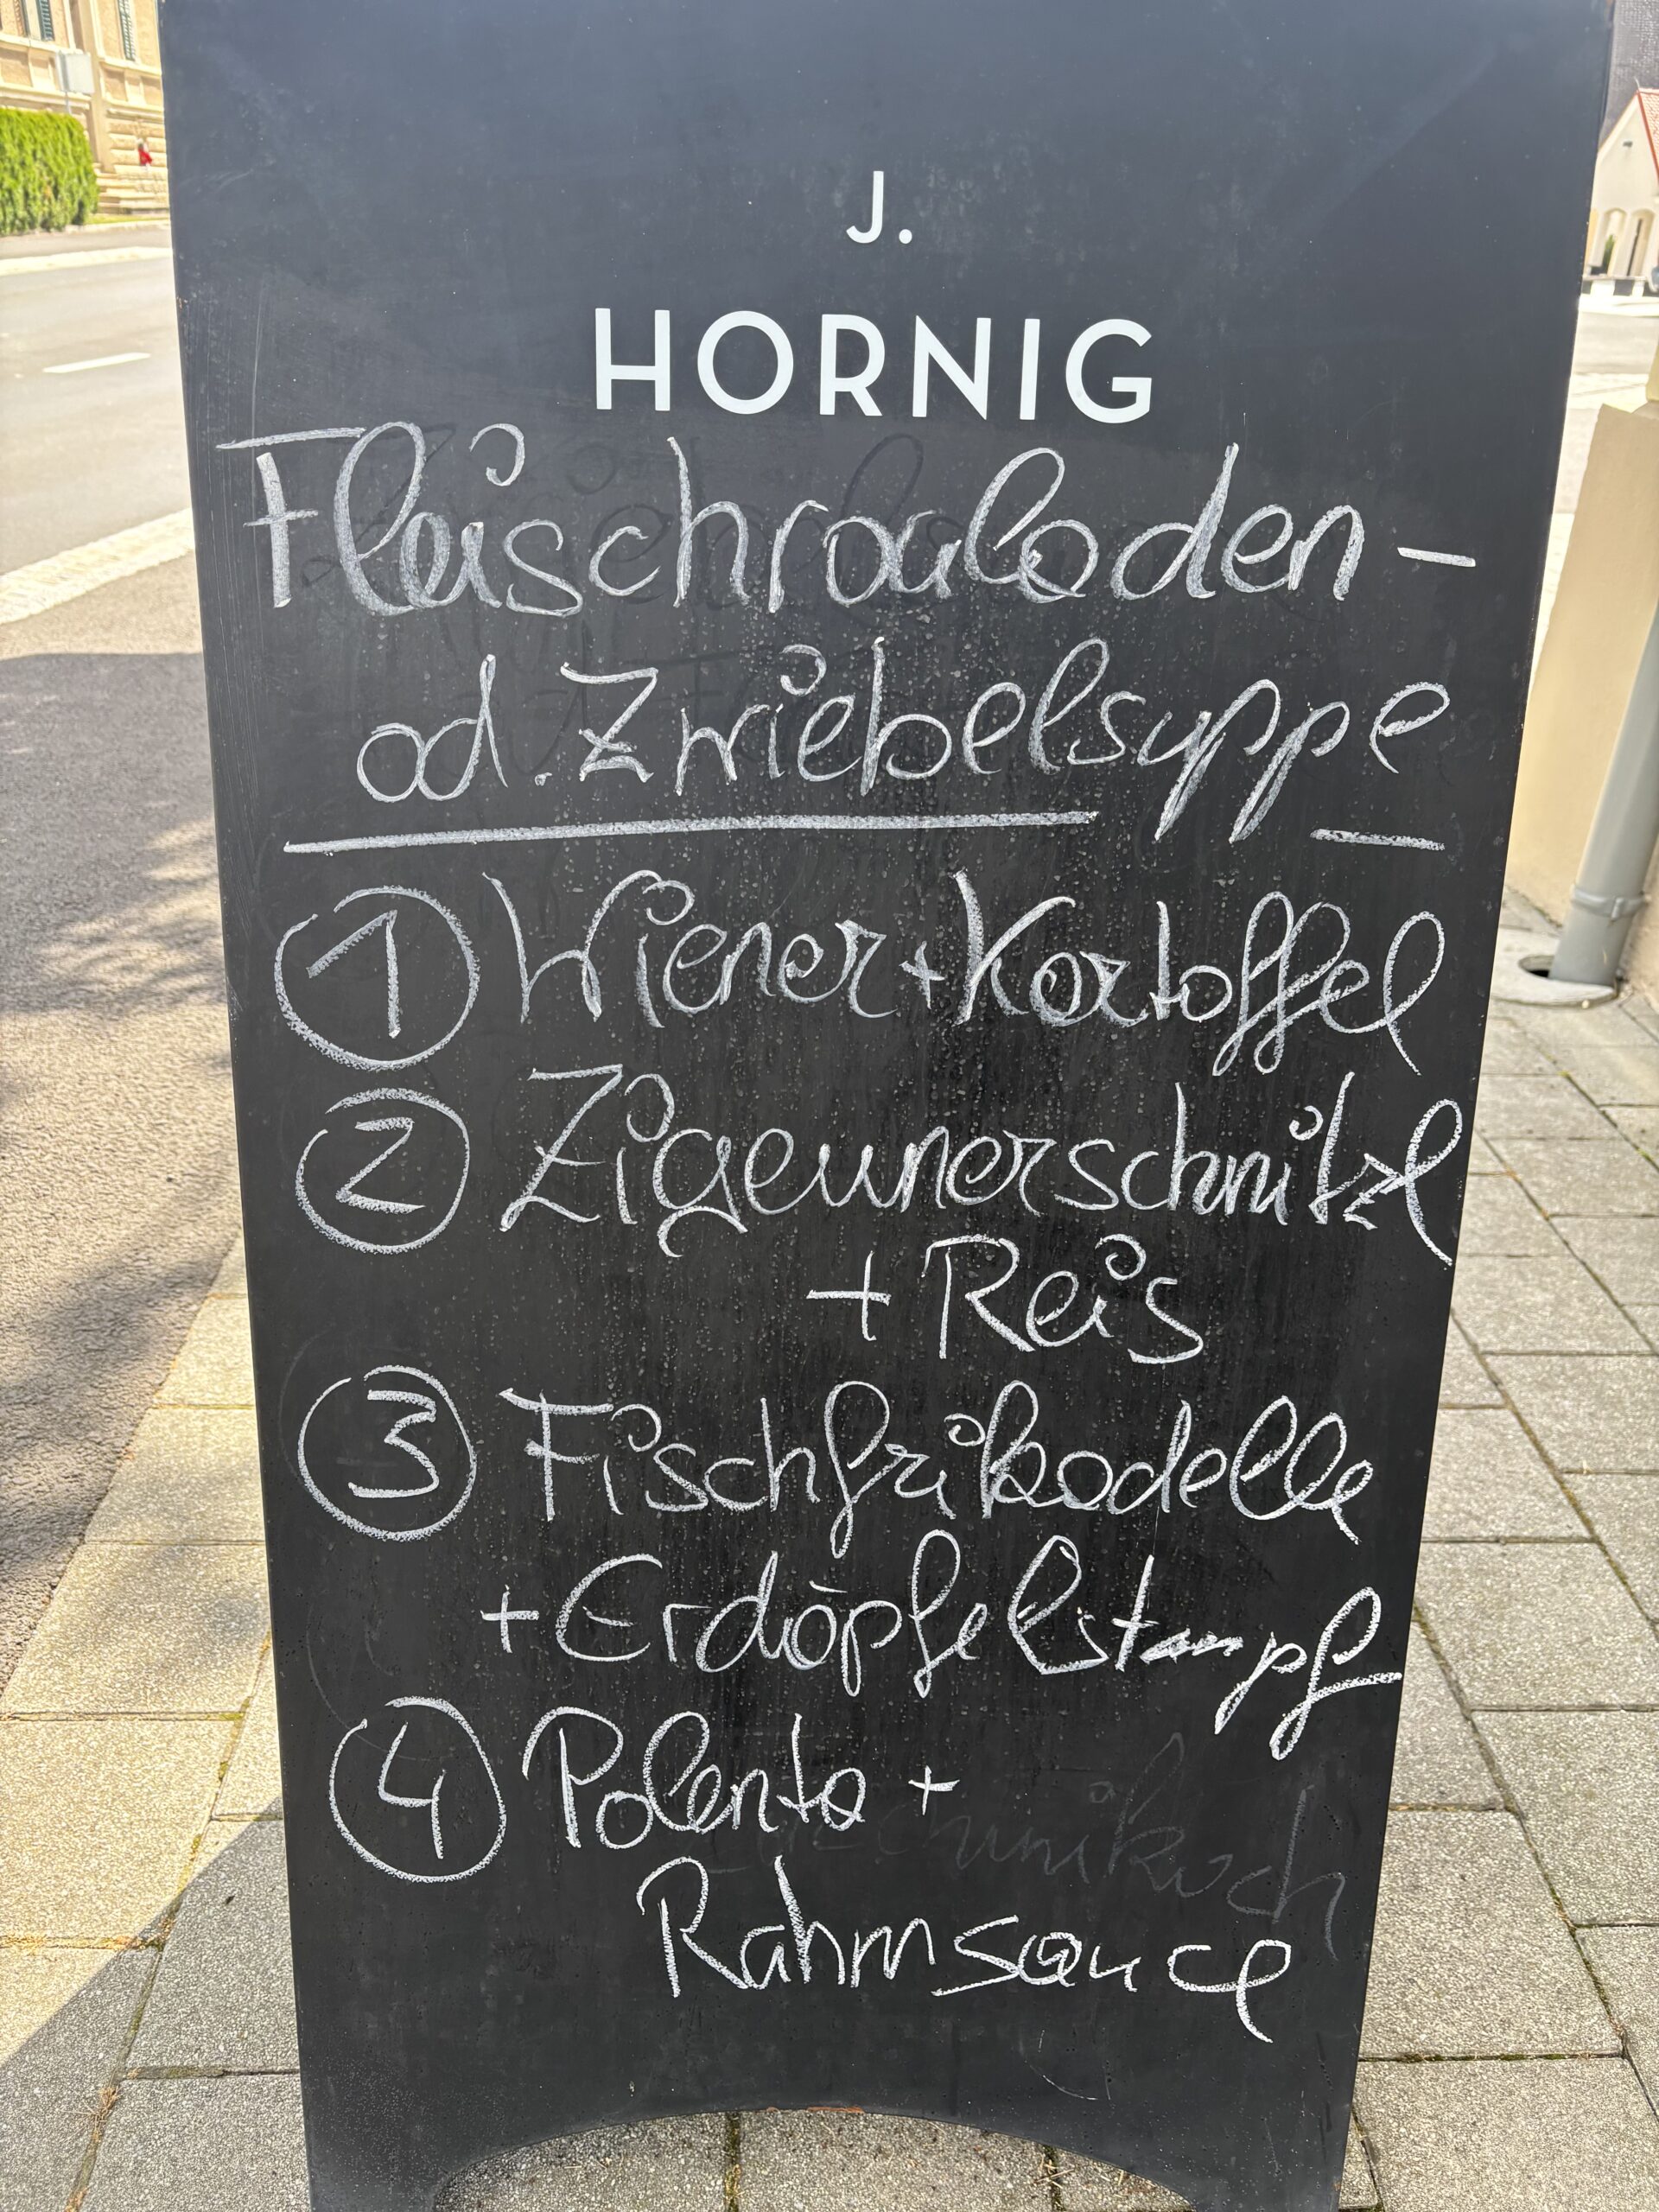 J.
HORNIG
Fleischrouladen-
od. Zwiebelsuppe
1 Wiener + Kartoffel
2 Zigeunerschnitzl
+ Reis
3 Fischfrikadelle
+ Erdöpfelstampf
4 Polenta +
Rahmsauce